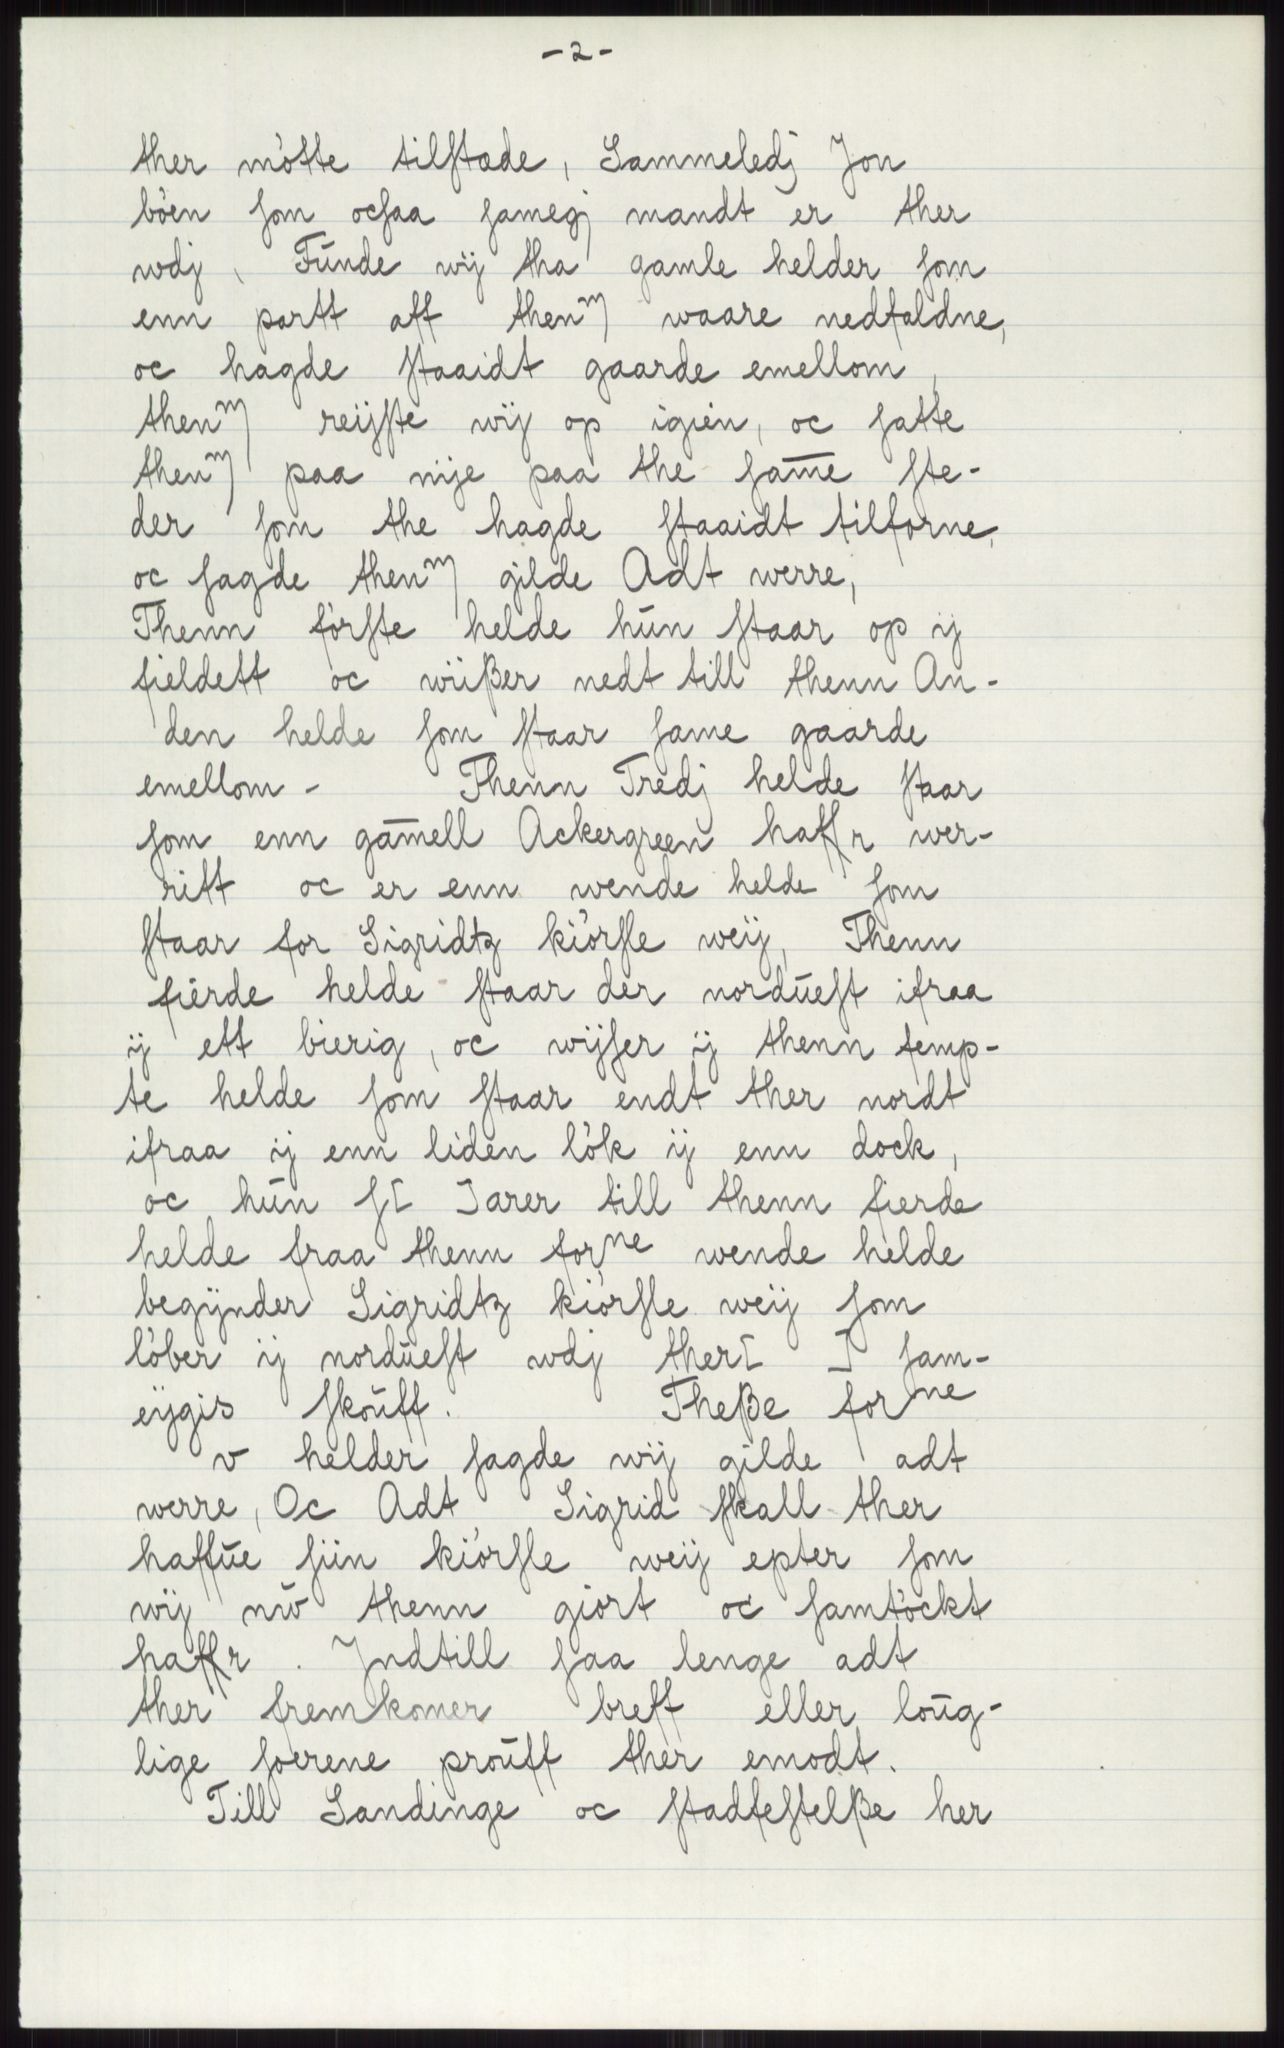 -2-
ther mötte tilstæde, Sammeledj Jon
böen som ocsaa samegj mandt er ther
wdj, Fūnde wij tha gamle helder som
enn partt aff thenm waare nedfaldne,
oc hagde staaidt gaarde emellom,
thenm reijste wij op igien, oc satte
thenm paa nije paa the sam̄e ste-
der som the hagde staaidt tilforne,
oc sagde thenm gilde Adt werre,
Thenn förste helde hūn staar op ij
fieldett oc wiißer nedt till thenn An-
den helde som staar same gaarde
emellom - Thenn Tredj helde staar
som enn gam̄ell Ackergreen haffr wer-
ritt oc er enn wende helde som
staar for Sigridtz kiörsle weij, Thenn
fierde helde staar der nordūest ifraa
ij ett bierig, oc wijser ij thenn femp-
te helde som staar endt ther nordt
ifraa ij enn liden lök ij enn dock,
oc hūn s[ ]arer till thenn fierde
helde fraa thenn forne wende helde
begÿnder Sigridtz kiörsle weij som
löber ij nordūest wdj ther[ ] sam-
eÿgis skoūff. Theße forne
v helder sagde wij gilde adt
werre, Oc Adt Sigrid skall ther
haffūe siin kiörsle weij epter som
wij nw̄ thenn giort oc samtöckt
haffr. Jndtill saa lenge adt
ther fremkomer breff eller loūg-
lige soerene proūff ther emodt.
Till Sandinge oc stadfestelße her